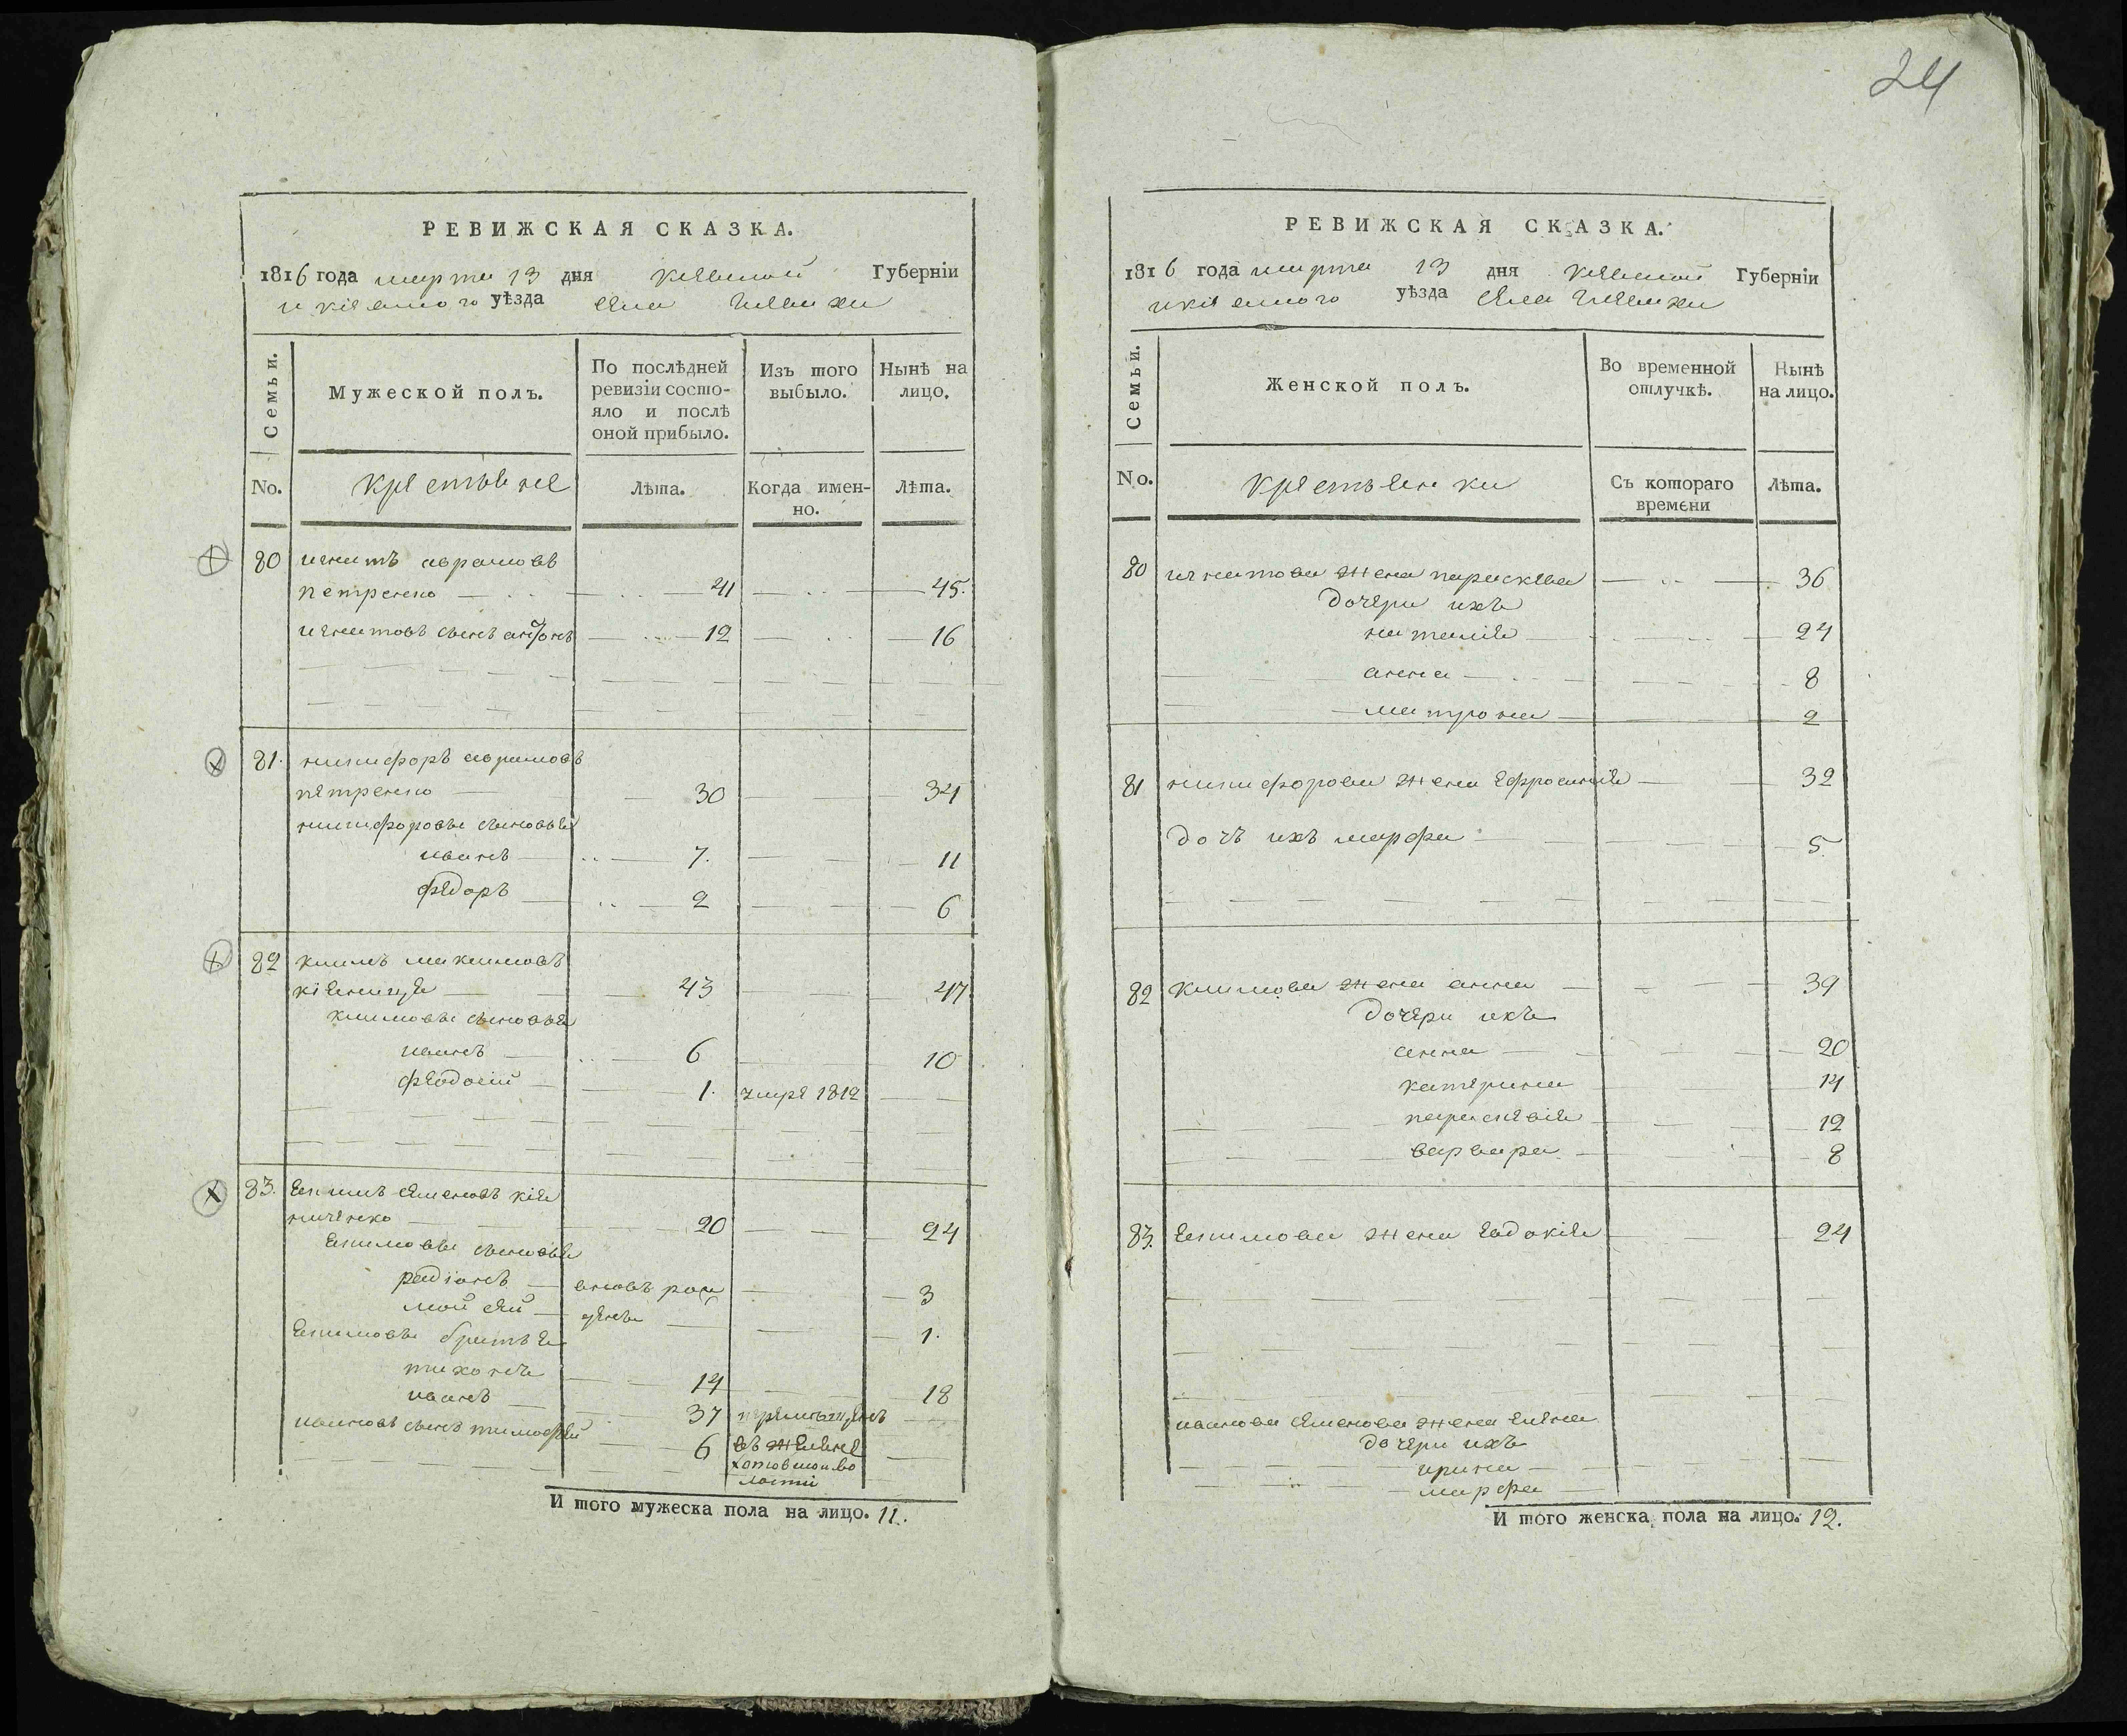 24
РЕВИЖСКАЯ СКАЗКА.
1816 года марта 13 дня киевской Губерніи
и кіевского уѣзда села
Семьи.
Мужеской полъ.
По послѣдней ревизіи состо-
яло и послѣ
оной прибыло.
Изъ того
выбыло.
Нынѣ на
лицо.
No.
крестьяне
Лѣта.
Когда имен-
но.
Лѣта.
80 игнатъ аврамовъ
петренко 41 45.
игнатовъ сынъ 12 16
81. никифоръ аврамовъ
петренко 30 34
никифоровы сыновья
иванъ 7. 11
федоръ 2 6
82 климъ максимовъ
43 47
климовы сыновья
иванъ 6 10
феодосій 1. умре 1812
83. екимъ семеновъ кія
ниченко 20 24
екимовы сыновья
радіонъ вновь рож 3
мойсей дены 1.
екимовы братья
тихонъ 14 18
иванъ 37 перемѣщенъ
ивановъ сынъ тимофей 6 въ
И того мужеска пола на лицо. 11.
РЕВИЖСКАЯ СКАЗКА.
1816 года марта 13 дня киевской Губерніи
и кіевского уѣзда села
Семьи.
Женской полъ.
Во временной
отлучкѣ.
Нынѣ
на лицо.
No.
крестьянки
Съ котораго
времени
Лѣта.
80 игнатова жена параскева 36
дочери ихъ
наталія 24
анна 8
матрона 2
81 никифорова жена ефросинія 32
дочь ихъ марфа 5
82 климова жена анна 39
дочери ихъ
анна 20
катерина 14
параскевія 12
варвара 8
83. екимова жена евдокія 24
иванова семенова жена елена
дочери ихъ
ирина
марфа
И того женска пола на лицо. 12.